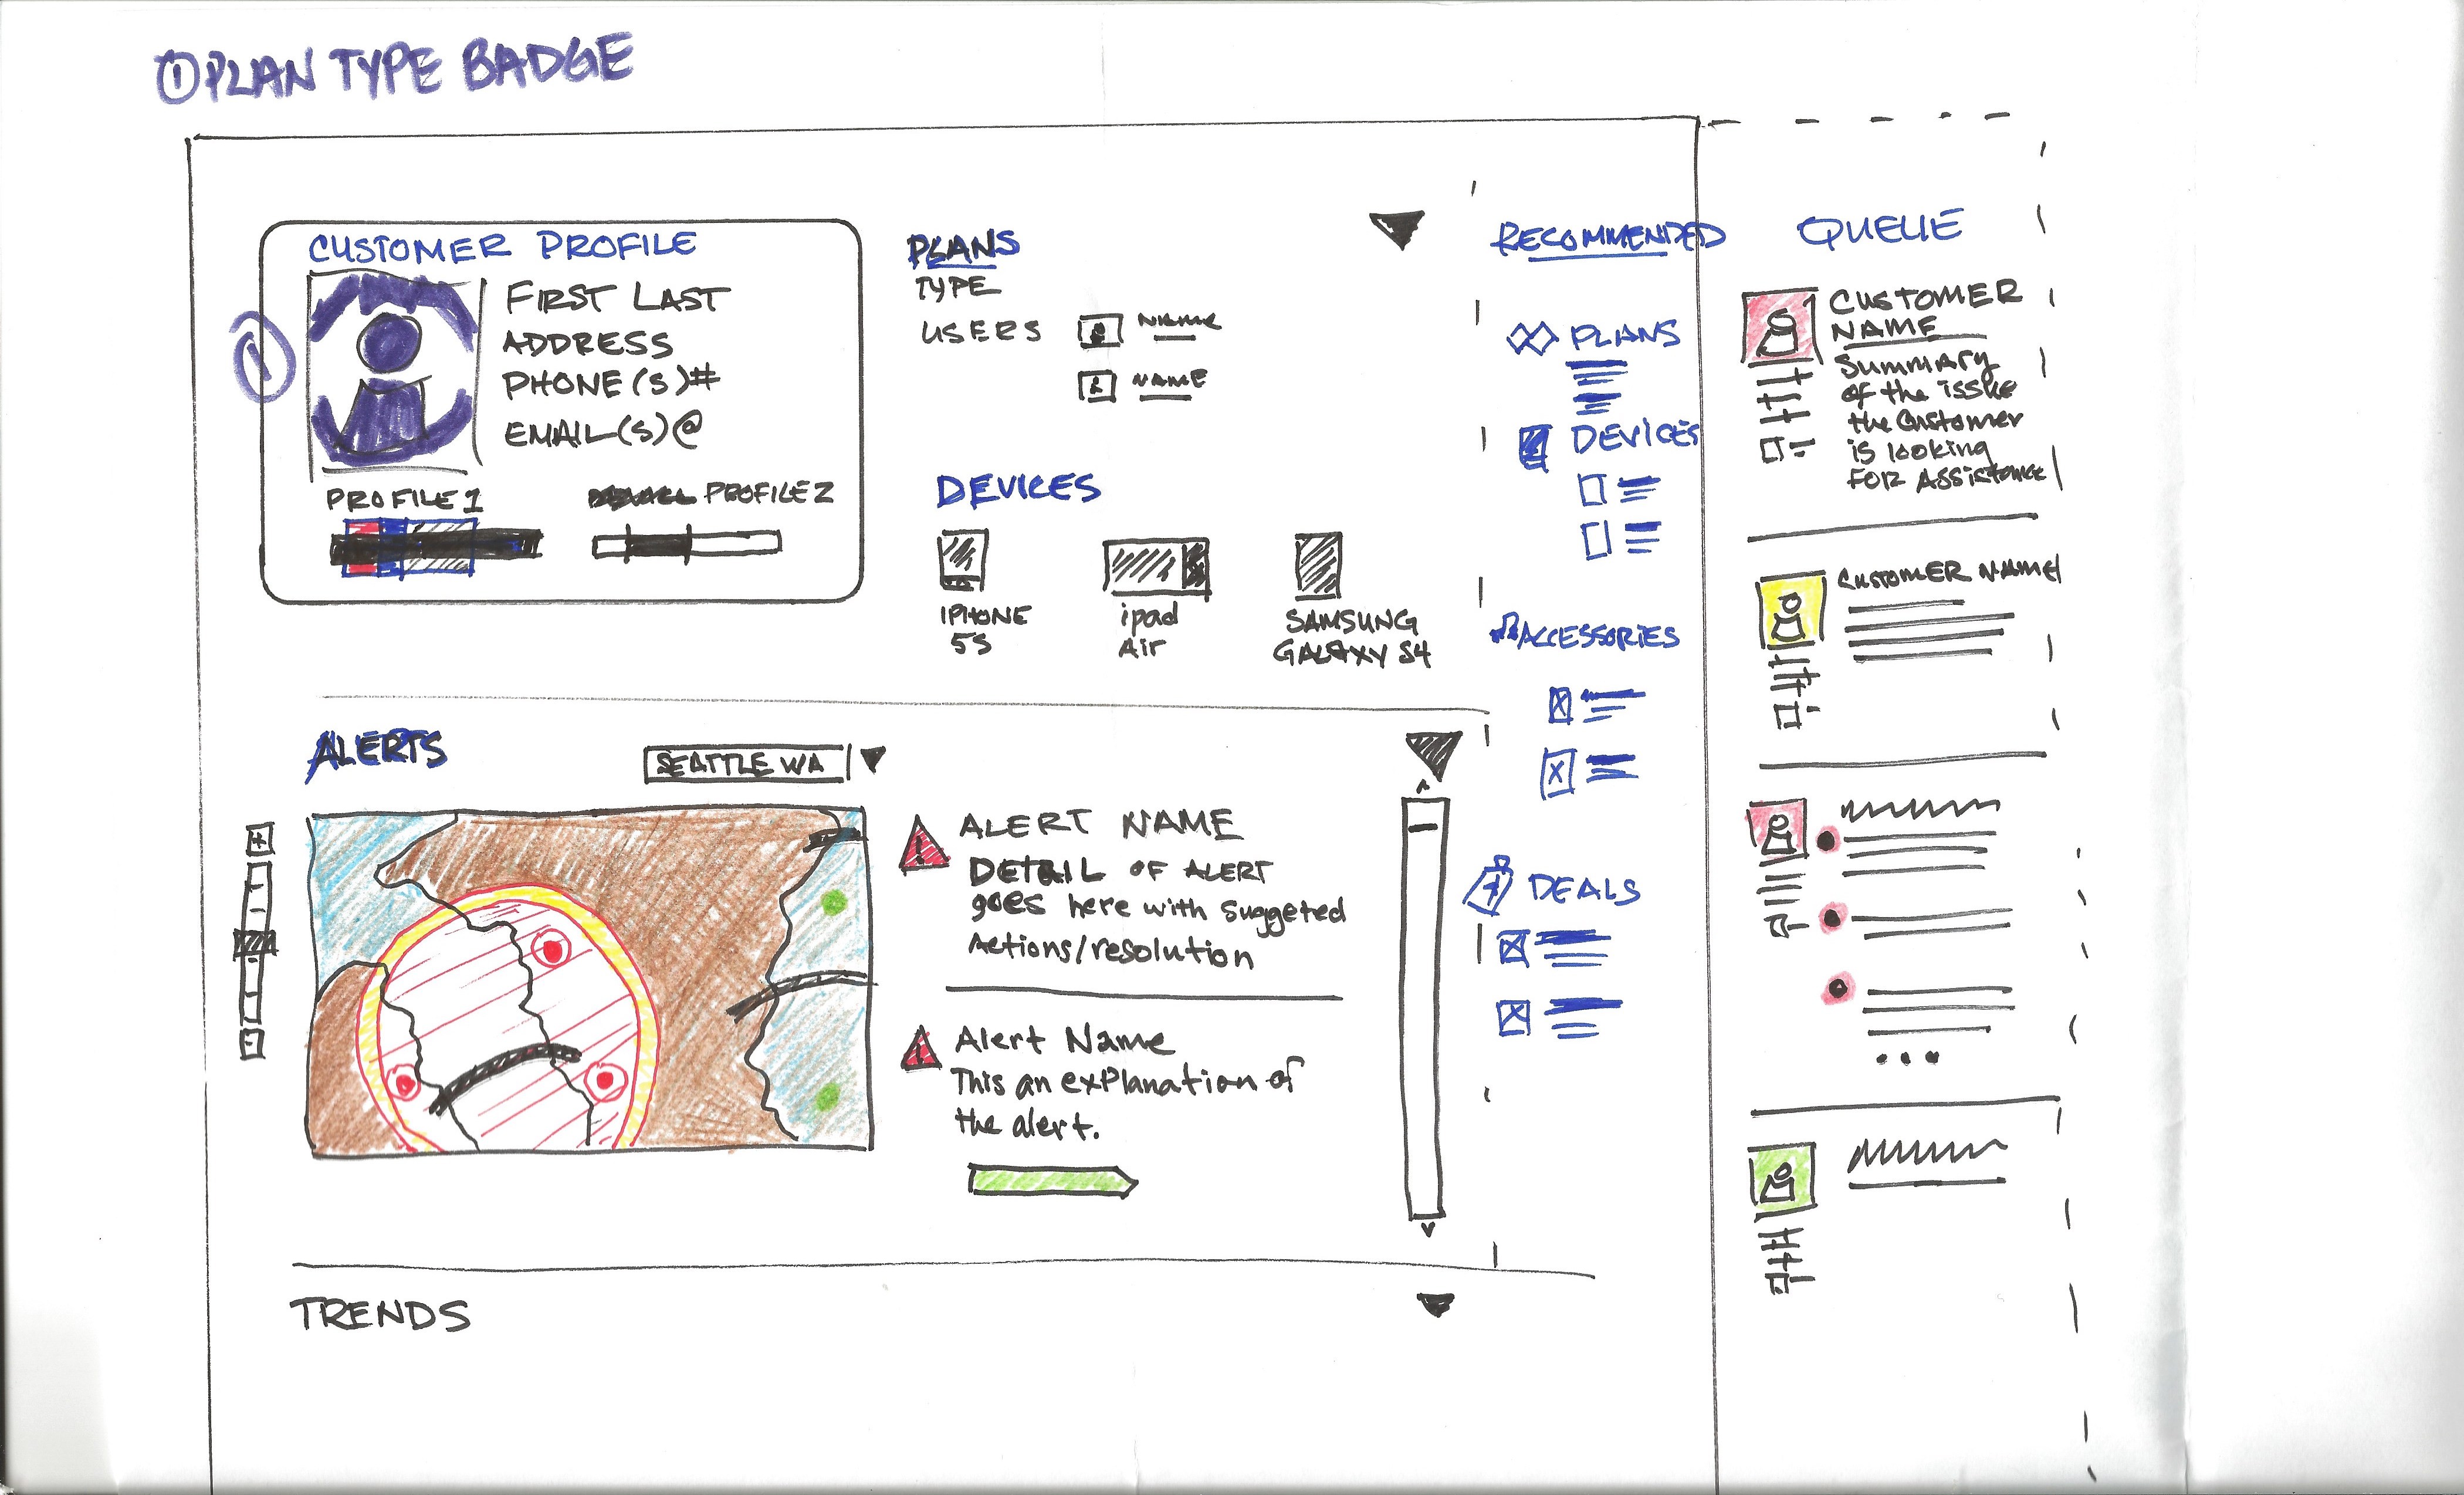 ① PLAN TYPE BADGE
CUSTOMER PROFILE
1
FIRST LAST
ADDRESS
PHONE(S)#
EMAIL(S)@
PROFILE 1
PROFILE 2
PLANS
TYPE
USERS
NAME
NAME
DEVICES
IPHONE
5S
ipad
Air
SAMSUNG
GALAXY S4
ALERTS
SEATTLE WA
+
-
! ALERT NAME
DETAIL OF ALERT
goes here with suggeted
Actions/resolution
! Alert Name
This an explanation of
the alert.
TRENDS
RECOMMENDED
PLANS
DEVICES
ACCESSORIES
DEALS
QUEUE
CUSTOMER
NAME
Summary
of the issue
the Customer
is looking
FOR Assistance
CUSTOMER NAME